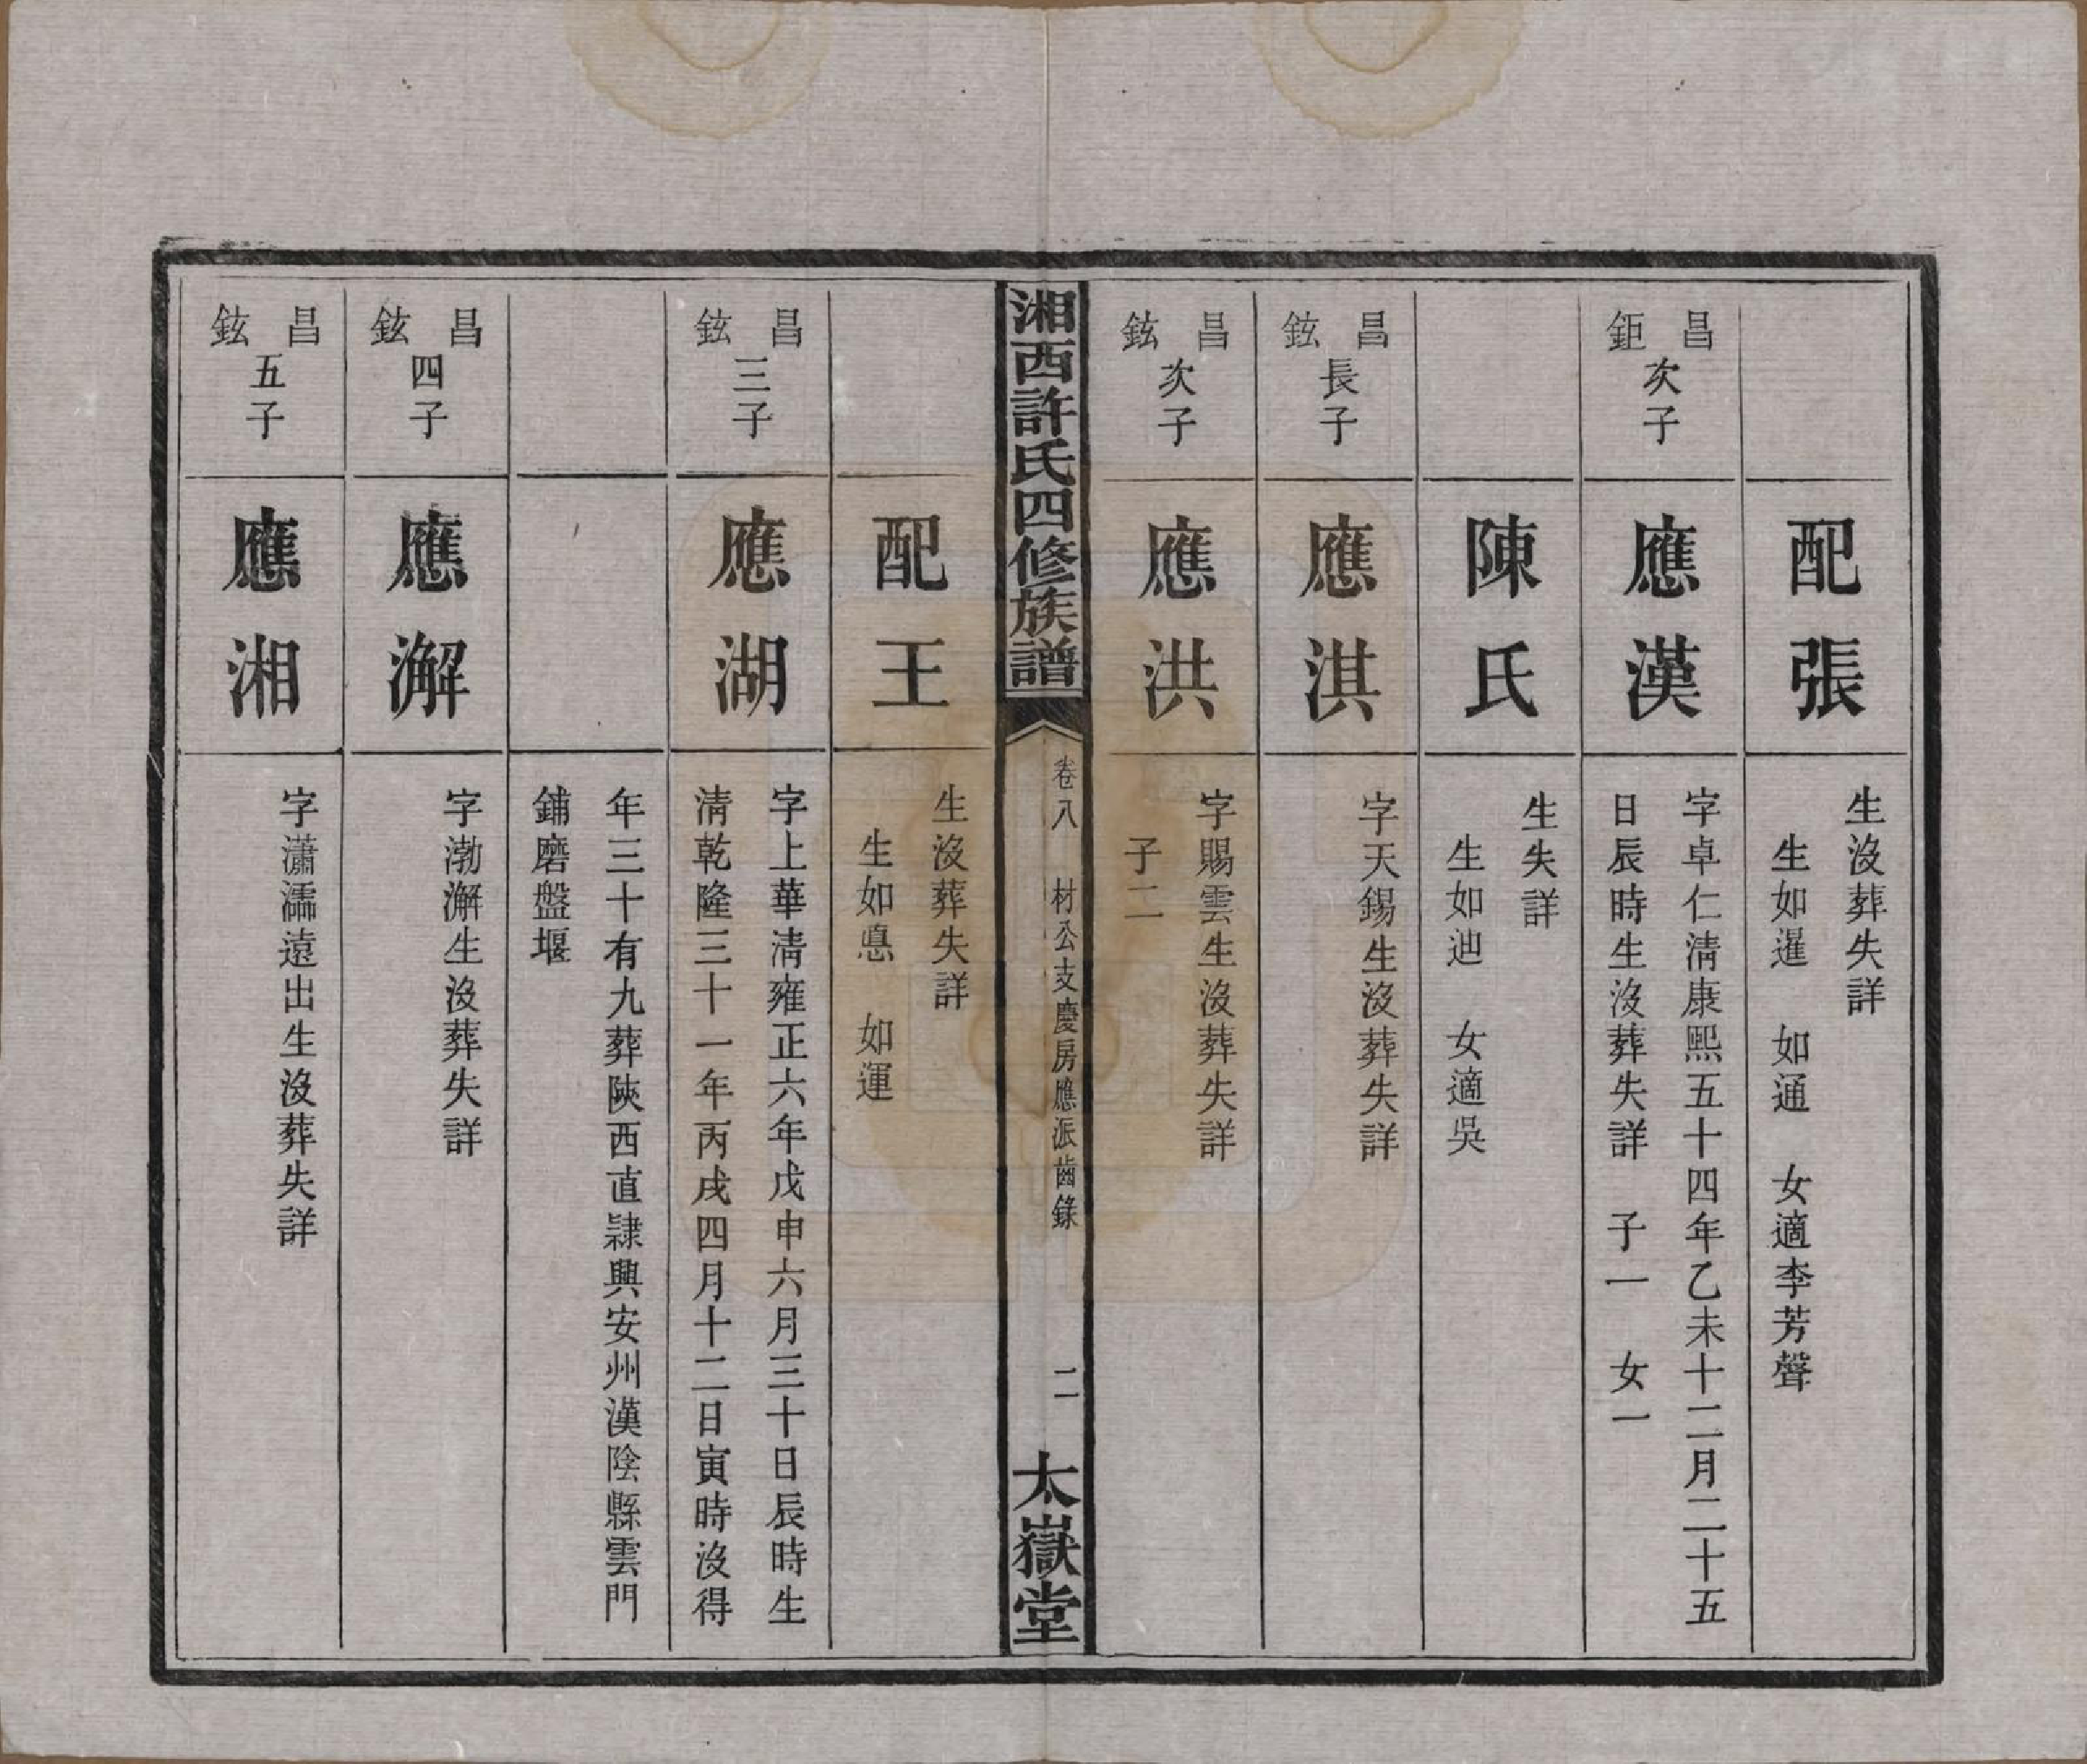 配張
生沒葬失詳
生如暹　如通　女適李芳聲
昌鉅次子
應漢
字卓仁清康熙五十四年乙未十二月二十五
日辰時生沒葬失詳　子一　女一
陳氏
生失詳
生如迪　女適吳
昌鉉長子
應淇
字天錫生沒葬失詳
昌鉉次子
應洪
字賜雲生沒葬失詳
子二
湘西許氏四修族譜
卷八　材公支慶房應派齒錄
二
太嶽堂
配王
生沒葬失詳
生如慐　如運
昌鉉三子
應湖
字上華清雍正六年戊申六月三十日辰時生
清乾隆三十一年丙戌四月十二日寅時沒得
年三十有九葬陝西直隸興安州漢陰縣雲門
鋪磨盤堰
昌鉉四子
應澥
字渤澥生沒葬失詳
昌鉉五子
應湘
字瀟濡遠出生沒葬失詳